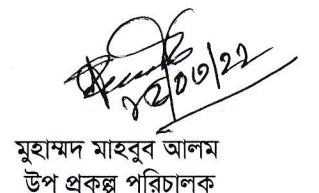 ১২/০৩/২২
মুহাম্মদ মাহবুব আলম
উপ প্রকল্প পরিচালক